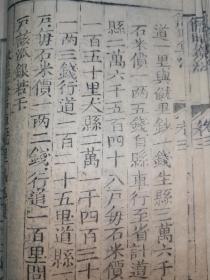 卷三
道里與 里 錢生縣三萬六千
石米價一兩五錢自縣車行至省計道
縣二萬六千五百四十八戶每石米價
一百五十里天縣二萬 千四百三十
一兩 錢行道一百二十五里道縣
每石米價一兩二錢行道一百里問
該派銀若干